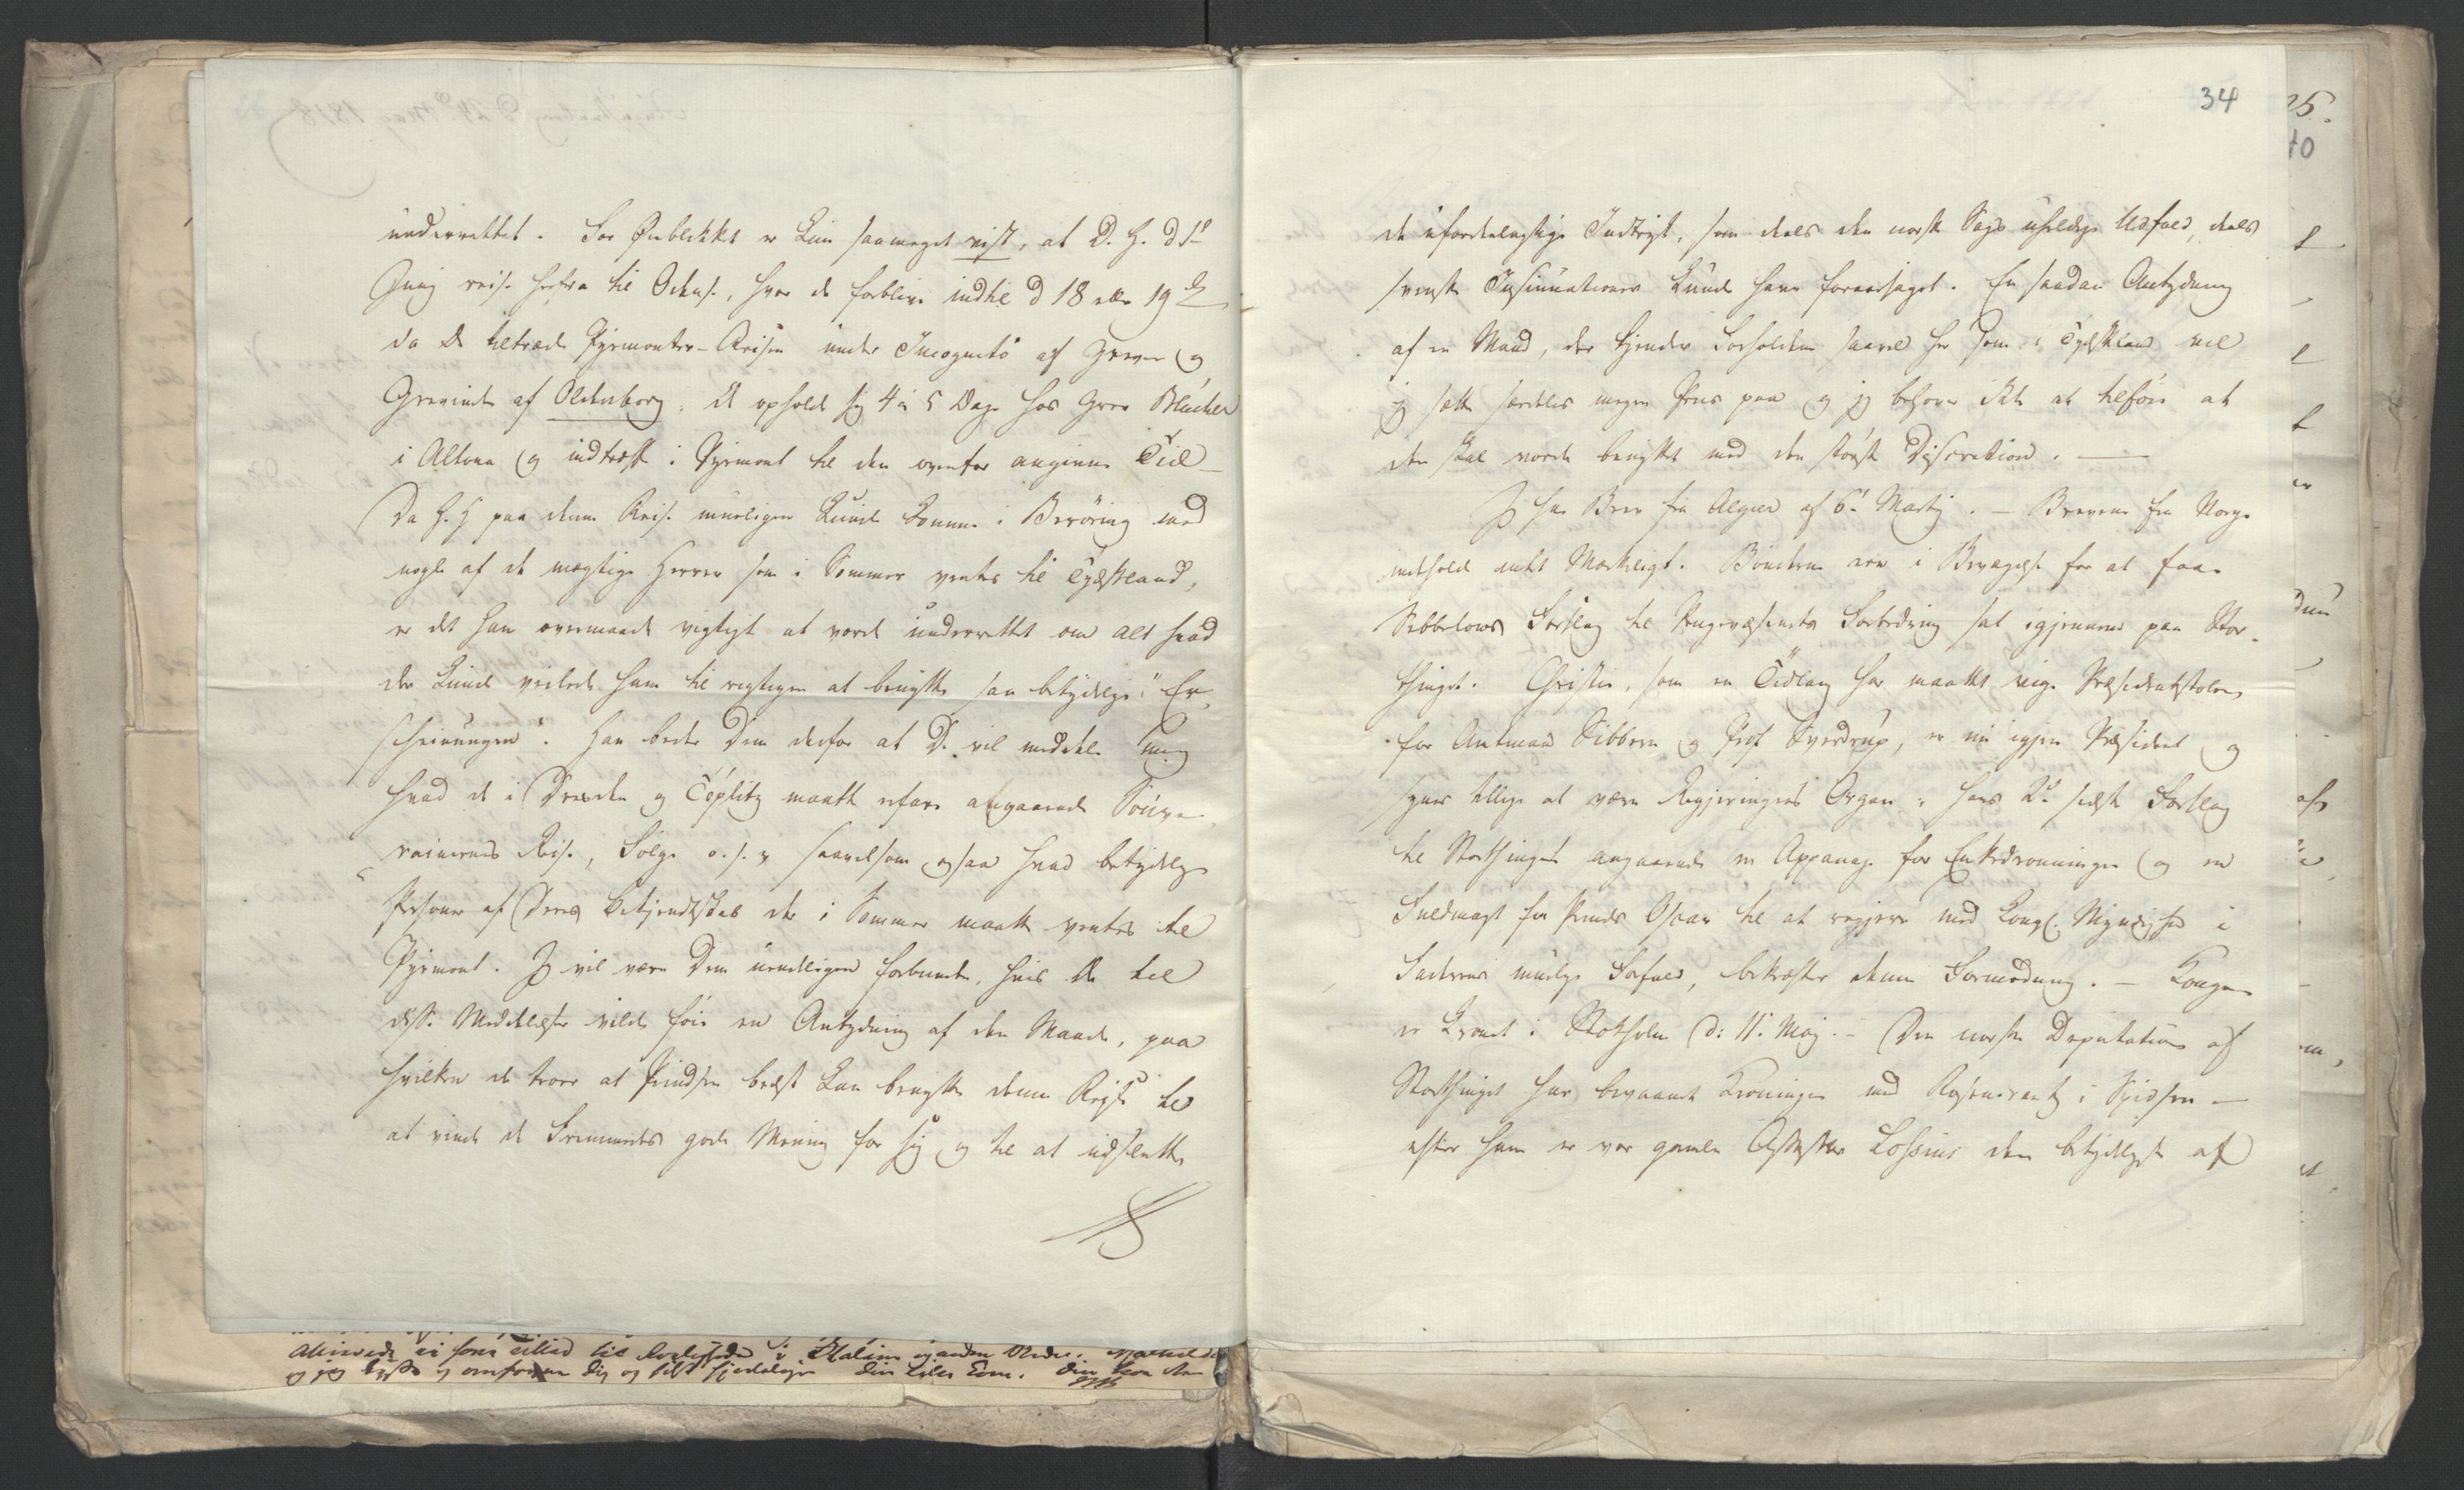 underrettet. For Øieblikket er kun saameget vist, at D. H. d 1ste
Junij reise herfra til Odense, hvor de forblive indtil d 18 eller 19de
da de tiltræde Pyrmonter-Reisen under Incognito af Greve og
Grevinde af Oldenborg; de opholde sig 4 à 5 Dage hos Grev Blücher
i Altona og indtræffe i Pyrmont til den ovenfor angivne Tid —
Da H. H paa denne Reise mueligen kunde komme i Berøring med
nogle af de mægtige Herrer som i Sommer ventes til Tydskland,
er det ham overmaade vigtigt at vorde underrettet om alt hvad
der kunde veilede ham til rigtigen at benytte saa betydelige "Er-
scheinungen". Han beder Dem derfor at De vil meddele mig
hvad de i Dresden og Töplitz maatte erfare angaaende Souve-
rainernes Reise, Følge o. s. v saavelsom ogsaa hvad betydelige
Personer af Deres Bekjendtskab der i Sommer maatte ventes til
Pyrmont. Jeg vil være Dem uendeligen forbunden, hvis De til
disse Meddelelser vilde føie en Antydning af den Maade, paa
hvilken de troer at Prindsen bedst kan benytte denne Reise til
at vinde de Fremmedes gode Mening for sig og til at udslette
34
de ufordelagtige Indtryk, som deels den norske Sags uheldige Udfald, deels
svenske Insinuationer kunde have foraarsaget. En saadan Antydning
af en Mand, der kjender Forholdene saavel her som i Tydskland vil
jeg sætte særdeles megen Priis paa og jeg behøver ikke at tilføie at
den skal vorde benyttet med den største Discretion. —
Jeg har Brev fra Algier af 6te Martij. — Brevene fra Norge
indholde intet Mærkeligt. Bønderne ere i Bevægelse for at faae
Forslag til Pengevæsenets Forbedring sat igjennem paa Stor-
thinget. Christie, som en Tidlang har maattet vige Præsidentstolen
for Amtmand Sibbern og Prof Sverdrup, er nu igjen Præsident og
synes tillige at være Regjeringens Organ; hans 2de sidste Forslag
til Storthinget angaaende en Appanage for Enkedronningen og en
Fuldmagt for Prinds Oscar til at regjere med Kongl. Myndighed i
Faderens muelige Forfald, bekræfter denne Formodning. — Kongen
er kronet i Stokholm d: 11te Maj. — Den norske Deputation af
Storthinget har bivaanet Kroningen med Rosenkrantz i Spidsen —
efter ham er vor gamle Lossius den betydeligste af